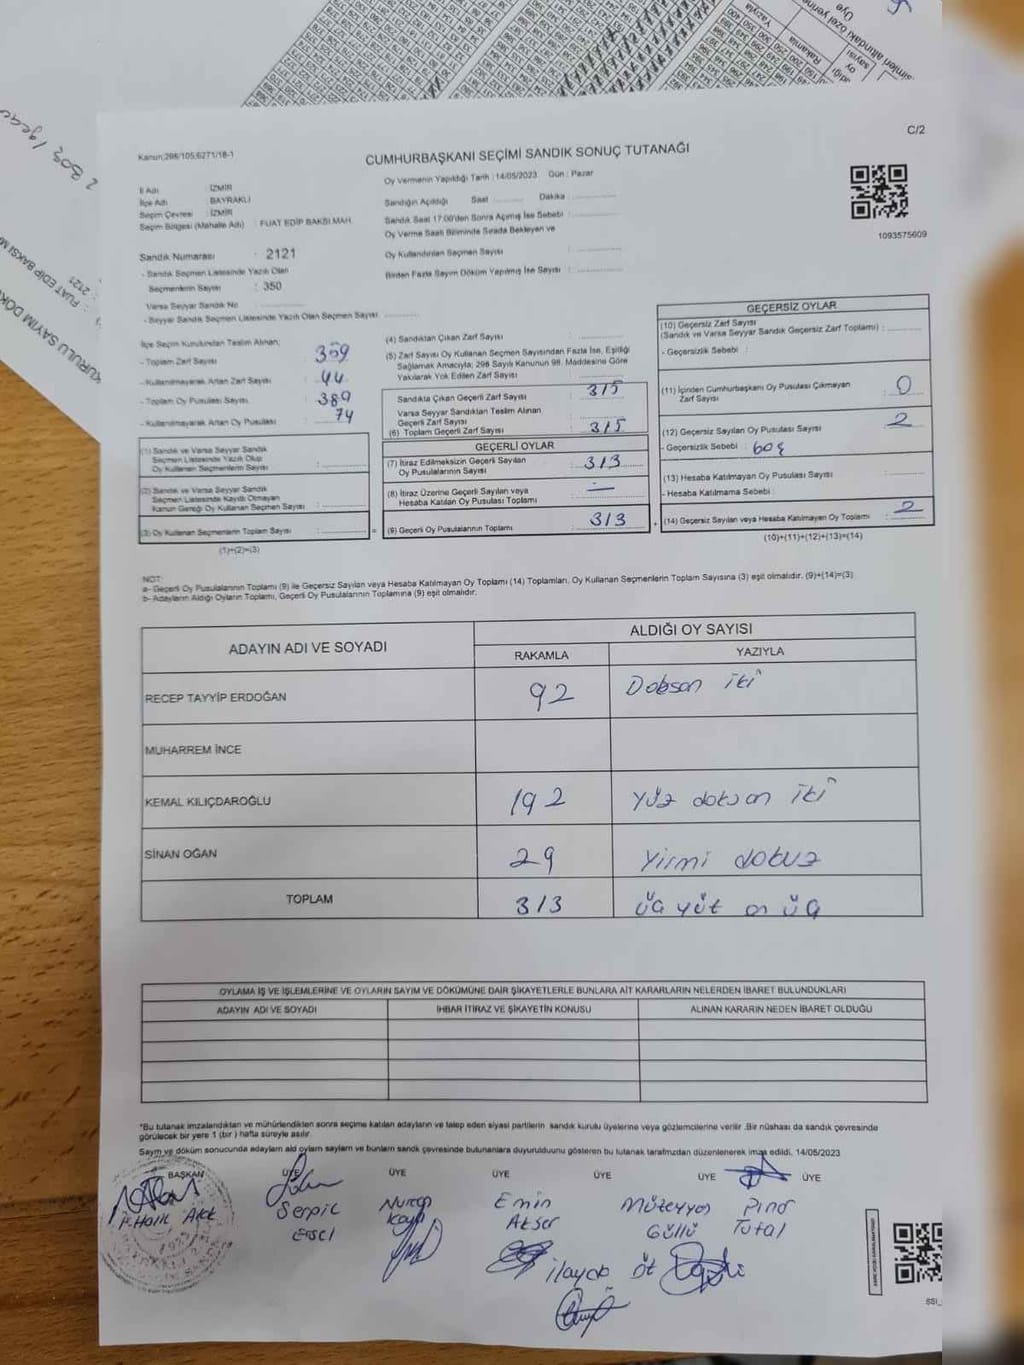 C/2
Kanun;298/105;6271/18-1
CUMHURBAŞKANI SEÇİMİ SANDIK SONUÇ TUTANAĞI
1093575609
İl Adı : İZMİR
İlçe Adı : BAYRAKLI
Seçim Çevresi : İZMİR
Seçim Bölgesi (Mahalle Adı) : FUAT EDİP BAKSI MAH.
Oy Vermenin Yapıldığı Tarih : 14/05/2023 Gün : Pazar
Sandığın Açıldığı Saat Dakika
Sandık Saat 17:00'den Sonra Açılmış İse Sebebi :
Oy Verme Saati Bitiminde Sırada Bekleyen ve
Oy Kullandırılan Seçmen Sayısı :
Birden Fazla Sayım Döküm Yapılmış İse Sayısı :
Sandık Numarası : 2121
- Sandık Seçmen Listesinde Yazılı Olan
Seçmenlerin Sayısı : 350
Varsa Seyyar Sandık No
- Seyyar Sandık Seçmen Listesinde Yazılı Olan Seçmen Sayısı
İlçe Seçim Kurulundan Teslim Alınan;
- Toplam Zarf Sayısı 359
- Kullanılmayarak Artan Zarf Sayısı 44
- Toplam Oy Pusulası Sayısı 389
- Kullanılmayarak Artan Oy Pusulası 74
(1) Sandık ve Varsa Seyyar Sandık
Seçmen Listesinde Yazılı Olup
Oy Kullanan Seçmenlerin Sayısı :
(2) Sandık ve Varsa Seyyar Sandık
Seçmen Listesinde Kayıtlı Olmayan
Kanun Gereği Oy Kullanan Seçmen Sayısı :
(3) Oy Kullanan Seçmenlerin Toplam Sayısı : =
(1)+(2)=(3)
(4) Sandıktan Çıkan Zarf Sayısı :
(5) Zarf Sayısı Oy Kullanan Seçmen Sayısından Fazla İse, Eşitliği
Sağlamak Amacıyla; 298 Sayılı Kanunun 98. Maddesine Göre
Yakılarak Yok Edilen Zarf Sayısı
Sandıkta Çıkan Geçerli Zarf Sayısı 315
Varsa Seyyar Sandıktan Teslim Alınan
Geçerli Zarf Sayısı
(6) Toplam Geçerli Zarf Sayısı : 315
GEÇERLİ OYLAR
(7) İtiraz Edilmeksizin Geçerli Sayılan
Oy Pusulalarının Sayısı : 313
(8) İtiraz Üzerine Geçerli Sayılan veya
Hesaba Katılan Oy Pusulası Toplamı : —
(9) Geçerli Oy Pusulalarının Toplamı : 313 +
GEÇERSİZ OYLAR
(10) Geçersiz Zarf Sayısı
(Sandık ve Varsa Seyyar Sandık Geçersiz Zarf Toplamı) :
- Geçersizlik Sebebi :
(11) İçinden Cumhurbaşkanı Oy Pusulası Çıkmayan
Zarf Sayısı : 0
(12) Geçersiz Sayılan Oy Pusulası Sayısı 2
- Geçersizlik Sebebi : boş
(13) Hesaba Katılmayan Oy Pusulası Sayısı
- Hesaba Katılmama Sebebi :
(14) Geçersiz Sayılan veya Hesaba Katılmayan Oy Toplamı : 2
(10)+(11)+(12)+(13)=(14)
NOT:
a- Geçerli Oy Pusulalarının Toplamı (9) ile Geçersiz Sayılan veya Hesaba Katılmayan Oy Toplamı (14) Toplamları, Oy Kullanan Seçmenlerin Toplam Sayısına (3) eşit olmalıdır. (9)+(14)=(3)
b- Adayların Aldığı Oyların Toplamı, Geçerli Oy Pusulalarının Toplamına (9) eşit olmalıdır.
ADAYIN ADI VE SOYADI ALDIĞI OY SAYISI
RAKAMLA YAZIYLA
RECEP TAYYİP ERDOĞAN 92 Doksan iki
MUHARREM İNCE
KEMAL KILIÇDAROĞLU 192 Yüz doksan iki
SİNAN OĞAN 29 Yirmi dokuz
TOPLAM 313 üç yüz on üç
OYLAMA İŞ VE İŞLEMLERİNE VE OYLARIN SAYIM VE DÖKÜMÜNE DAİR ŞİKAYETLERLE BUNLARA AİT KARARLARIN NELERDEN İBARET BULUNDUKLARI
ADAYIN ADI VE SOYADI İHBAR İTİRAZ VE ŞİKAYETİN KONUSU ALINAN KARARIN NEDEN İBARET OLDUĞU
*Bu tutanak imzalandıktan ve mühürlendikten sonra seçime katılan adayların ve talep eden siyasi partilerin sandık kurulu üyelerine veya gözlemcilerine verilir .Bir nüshası da sandık çevresinde
görülecek bir yere 1 (bir ) hafta süreyle asılır.
Sayım ve döküm sonucunda adayların ald oyların sayıların ve bunların sandık çevresinde bulunanlara duyurulduunu gösteren bu tutanak tarafımızdan düzenlenerek imza edildi. 14/05/2023
BAŞKAN ÜYE ÜYE ÜYE ÜYE ÜYE ÜYE
Serpil Nuray Emin Müzeyyen Pınar
Akser Güllü Tutal
ilayda